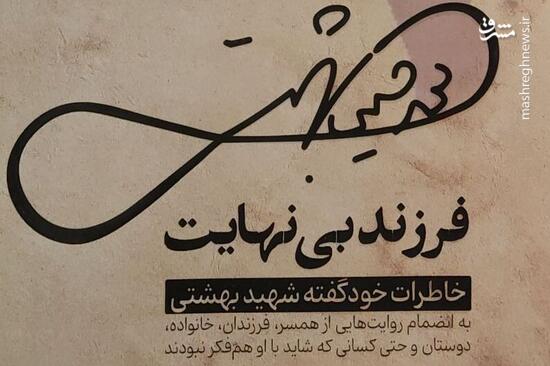 مشرق
mashreghnews.ir
فرزند بی‌نهایت
خاطرات خودگفته شهید بهشتی
به انضمام روایت‌هایی از همسر، فرزندان، خانواده،
دوستان و حتی کسانی که شاید با او هم‌فکر نبودند